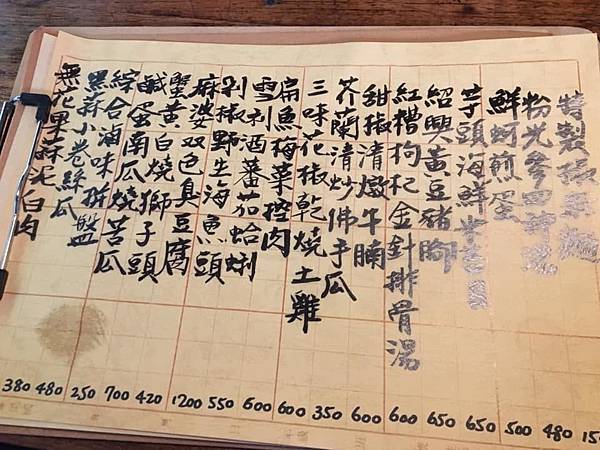 特製菜麵
粉光參四神湯
鮮蚵煎蛋
芋頭海鮮米
紹興黃豆豬腳
紅糟枸杞金針排骨湯
甜椒清燉牛腩
芥蘭清炒佛手瓜
三味花椒乾燒土雞
扁魚梅菜控肉
雪利酒蕃茄蛤蜊
剁椒野生海魚頭
麻婆双色臭豆腐
蟹黃白燒獅子頭
鹹蛋南瓜燒苦瓜
綜合滷味拼盤
黑蒜小卷絲瓜
無花果蒜泥白肉
380 480 250 700 420 1200 550 600 600 350 600 600 650 650 500 480